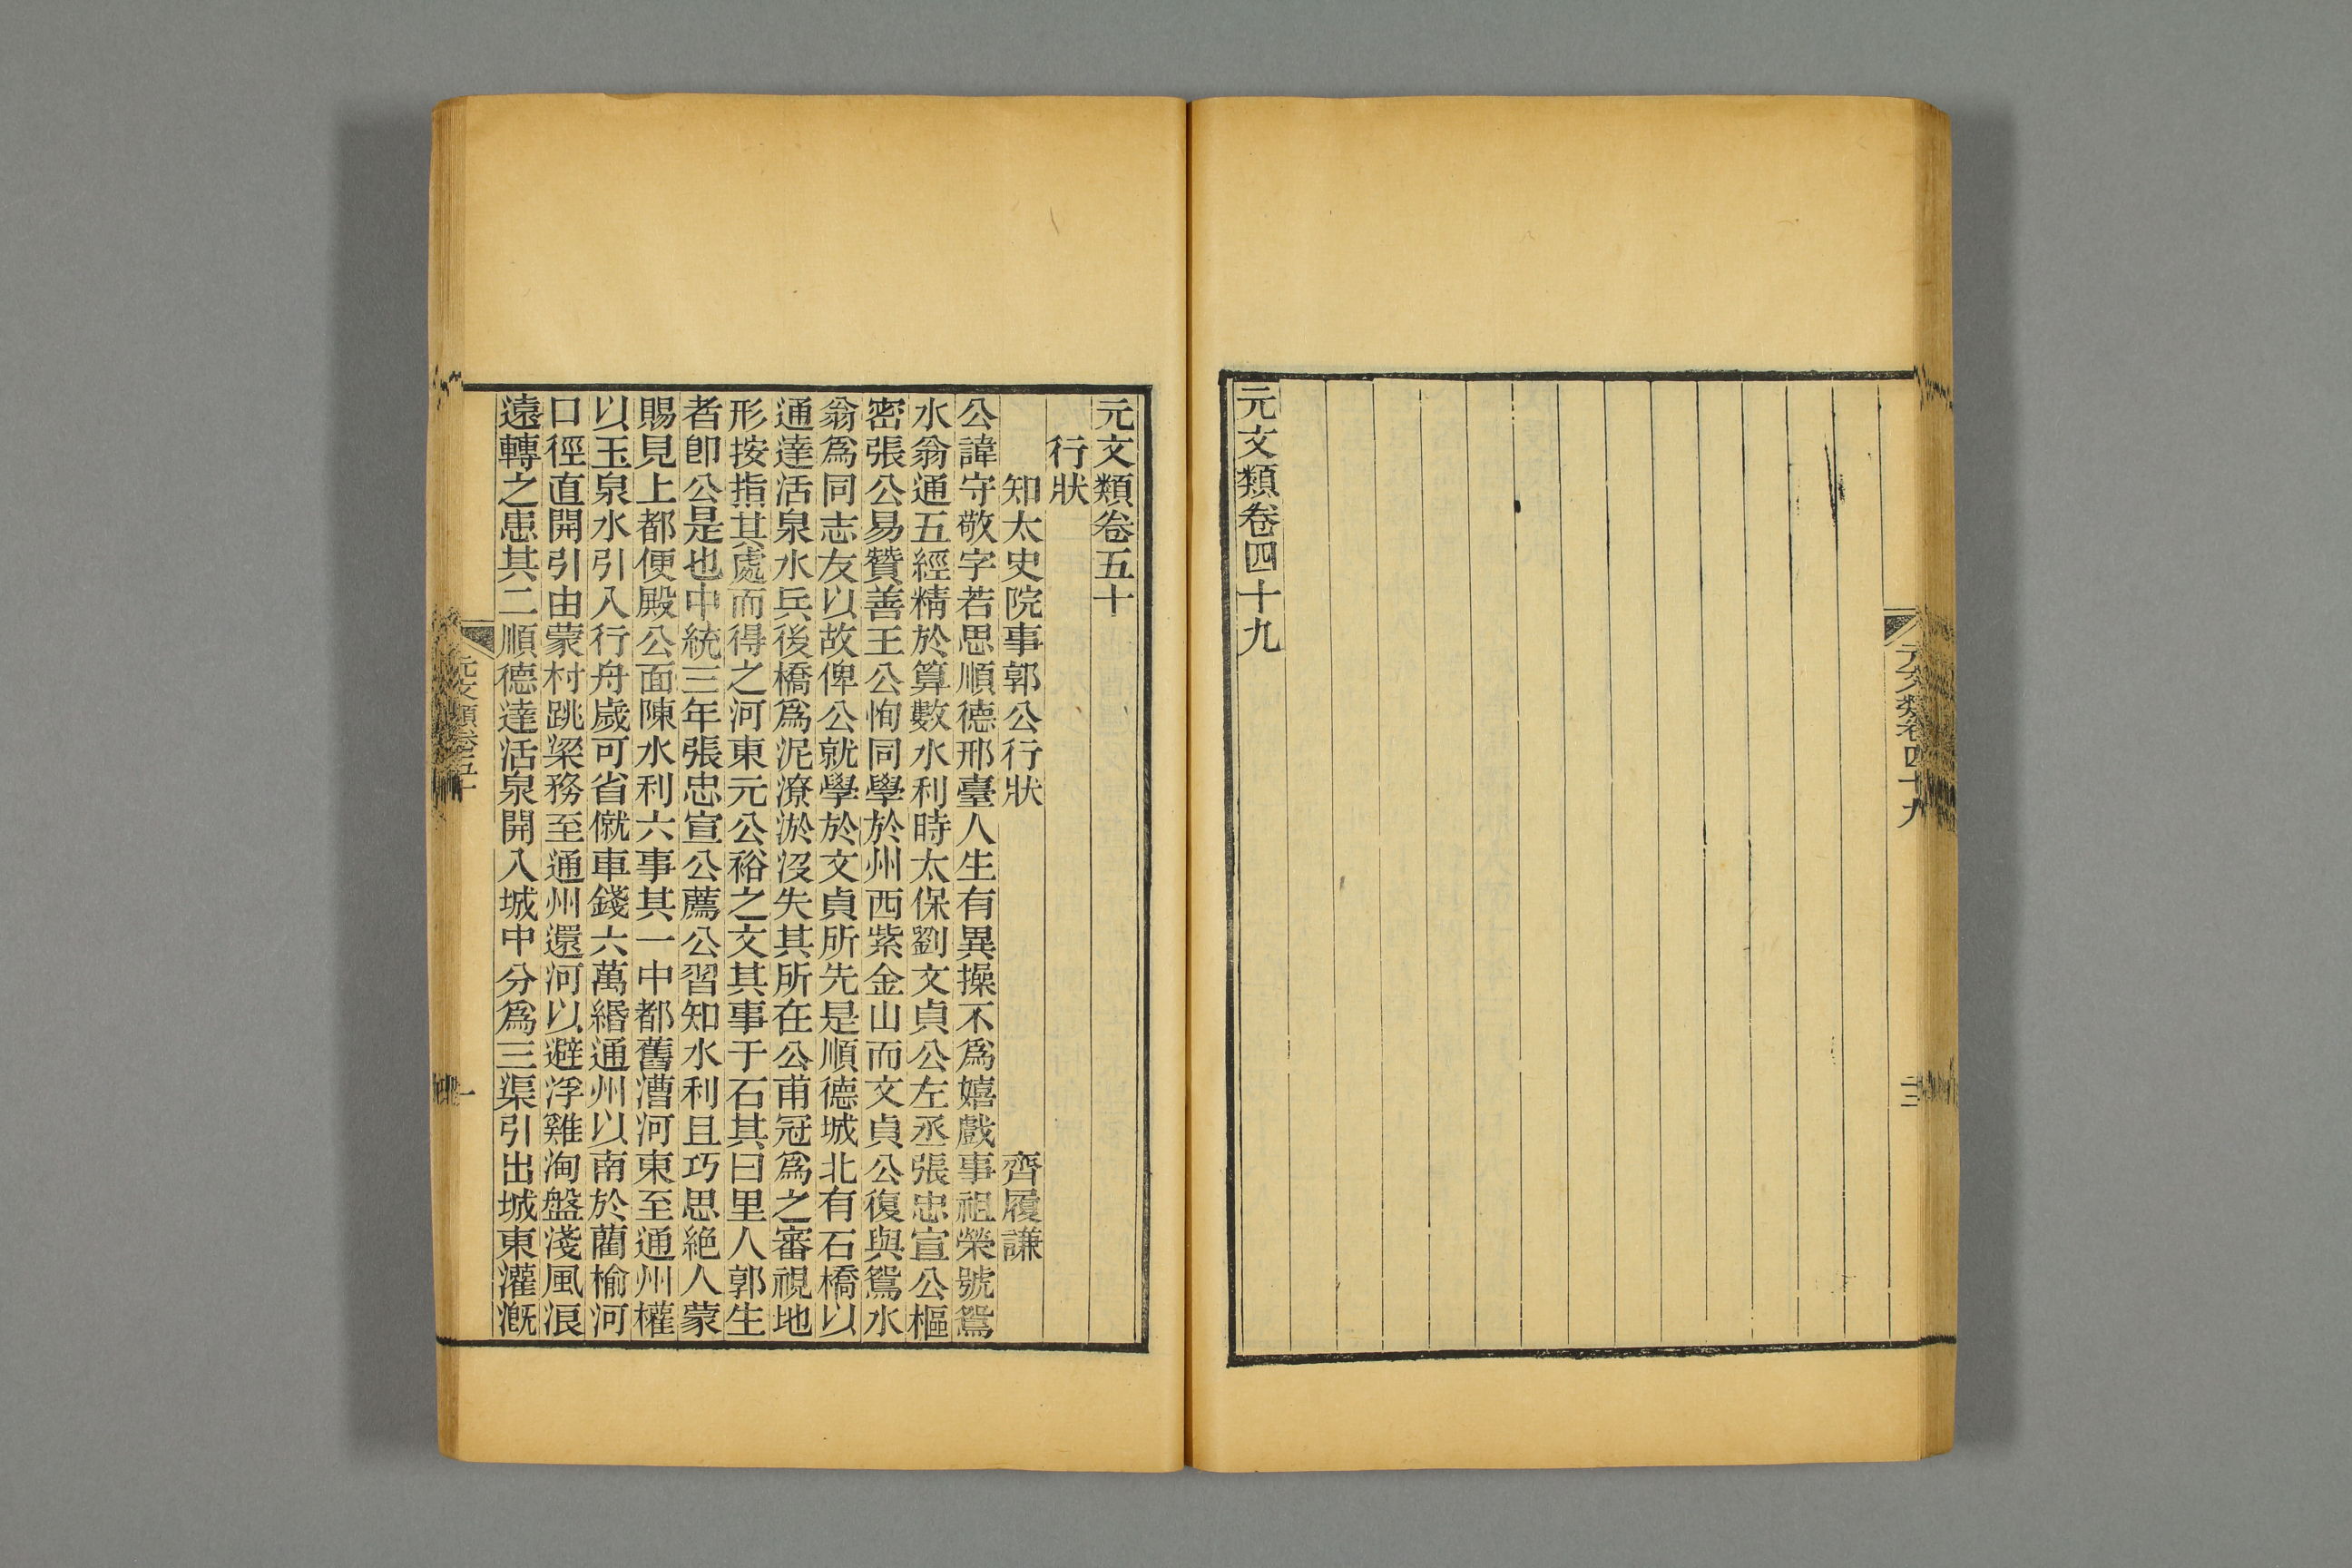 元文類卷四十九
元文類卷四十九
元文類卷五十
行狀
知太史院事郭公行狀 齊履謙
公諱守敬字若思順德邢臺人生有異操不爲嬉戲事祖榮號鴛
水翁通五經精於算數水利時太保劉文貞公左丞張忠宣公樞
密張公易贊善王公恂同學於州西紫金山而文貞公復與鴛水
翁爲同志友以故俾公就學於文貞所先是順德城北有石橋以
通達活泉水兵後橋爲泥潦淤沒失其所在公甫冠爲之審視地
形按指其處而得之河東元公裕之文其事于石其曰里人郭生
者卽公是也中統三年張忠宣公薦公習知水利且巧思絶人蒙
賜見上都便殿公面陳水利六事其一中都舊漕河東至通州權
以玉泉水引入行舟歲可省僦車錢六萬緡通州以南於藺榆河
口徑直開引由蒙村跳梁務至通州還河以避浮雞洵盤淺風浪
遠轉之患其二順德達活泉開入城中分爲三渠引出城東灌漑
元文類卷五十
一